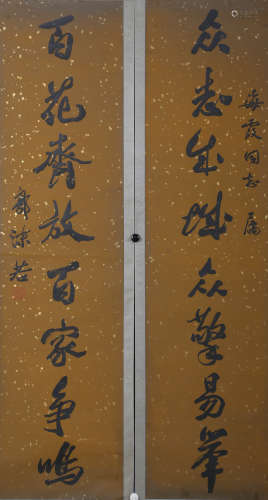 众志成城众擎易举
海霞同志属
百花齐放百家争鸣
郭沫若